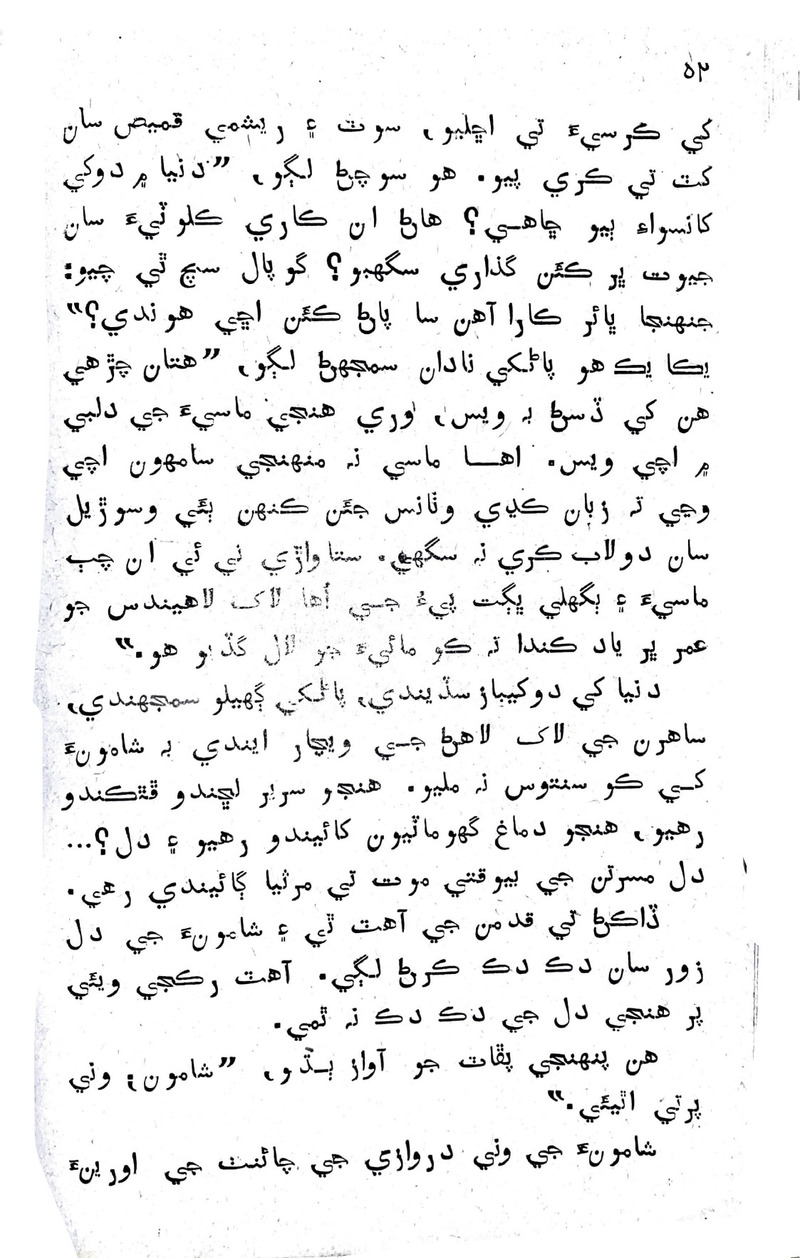 ۵۲
کي ڪرسيءَ تي اڇليو، سوٽ ۽ ريشمي قميص سان
کٽ تي ڪري پيو. هو سوچڻ لڳو، ”دنيا ۾ دوکي
کانسواءِ ٻيو ڇاهي؟ هاڻ ان ڪاري ڪلوٽيءَ سان
جيوت ڀر ڪئن گذاري سگهبو؟ گوپال سچ ٿي چيو:
جنهنجا ڀائر ڪارا آهن سا پاڻ ڪئن اڇي هوندي؟“
يڪا يڪ هو پاڻکي نادان سمجهڻ لڳو، ”هتان چڙهي
هن کي ڏسڻ بہ ويس، اوري هنجي ماسيءَ جي دلبي
۾ اچي ويس. اها ماسي نہ منهنجي سامهون اچي
وڃي تہ زبان ڪڍي وٺانس جئن ڪنهن ٻئي وسوڙيل
سان دولاب ڪري نہ سگهي. ستاواڙي ني ئي ان چٻ
ماسيءَ ۽ ٻگهلي ڀڳت پيءُ جي اُها لاک لاهيندس جو
عمر ڀر ياد ڪندا تہ ڪو مائيءَ جو لال گڏيو هو.“
دنيا کي دوکيباز سڏيندي، پاڻکي ڳهيلو سمجهندي،
ساهرن جي لاک لاهڻ جي ويچار ايندي بہ شامونءَ
کي ڪو سنتوس نہ مليو. هنجو سرير لڇندو ڦٿڪندو
رهيو، هنجو دماغ گهوماٽيون کائيندو رهيو ۽ دل؟...
دل مسرتن جي بيوقتي موت تي مرثيا ڳائيندي رهي.
ڏاڪڻ تي قدمن جي آهٽ ٿي ۽ شامونءَ جي دل
زور سان دڪ دڪ ڪرڻ لڳي. آهٽ رڪجي ويئي
پر هنجي دل جي دڪ دڪ نہ ٿمي.
هن پنهنجي پڦاٽ جو آواز ٻڌو، ”شامون، وني
پرتي اٿيئي.“
شامونءَ جي وني دروازي جي چائنٺ جي اورينءَ